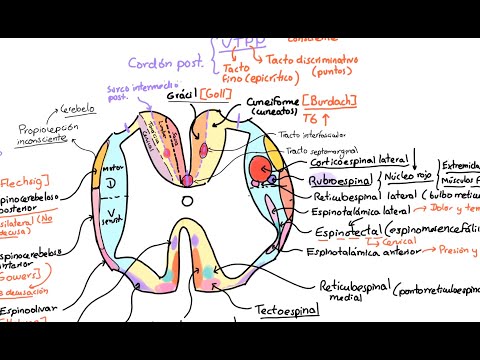 consciente
VTPP
Cordón post.
Tacto discriminativo
(puntos)
Tacto
fino (epicrítico)
Surco intermedio
post.
Grácil [Goll]
Cuneiforme [Burdach]
(cuneatos)
T6 ↑
→ Cerebelo
Propiolepción
inconsciente
Tracto interfascicular
Tracto septomarginal
Corticoespinal lateral
Rubroespinal { Núcleo rojo
Extremida
Músculos F
Reticuloespinal lateral (bulbo
Espinotalámica lateral → Dolor y tem
Espinotectal (espinomesencefálic
→ Cervical
Espinotalámica anterior → Presión y
Motor
D
V
Flechsig]
spinocerebeloso
posterior
silateral (No
decusa)
spinocerebeloso
anterior
Gowers]
decusación
Espinoolivar
Tectoespinal
Reticuloespinal (pontorreticuloespin
medial